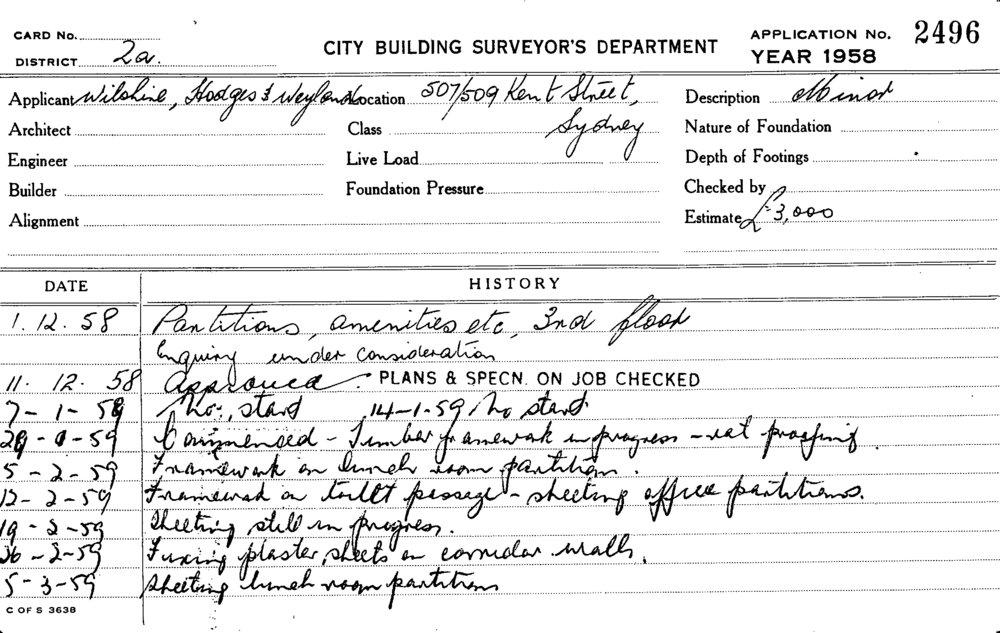 CARD No.
DISTRICT 2a.
CITY BUILDING SURVEYOR'S DEPARTMENT
APPLICATION No. 2496
YEAR 1958
Applicant Wilshire, Hodges & Weyland Location 507/509 Kent Street, Description Minor
Architect Class Sydney Nature of Foundation
Engineer Live Load Depth of Footings
Builder Foundation Pressure Checked by
Alignment Estimate £3,000
DATE HISTORY
1.12.58 Partitions, amenities etc, 3rd floor
Enquiry under consideration
11.12.58 Approved. PLANS & SPECN. ON JOB CHECKED
7-1-59 No start 14-1-59 No start
29-1-59 Commenced - Timber framework in progress - rat proofing.
5-2-59 Framework on lunch room partition.
12-2-59 Framework on toilet passage - sheeting office partitions.
19-2-59 Sheeting still in progress.
26-2-59 Fixing plaster sheets on corridor walls.
5-3-59 Sheeting lunch room partitions
C OF S 3638